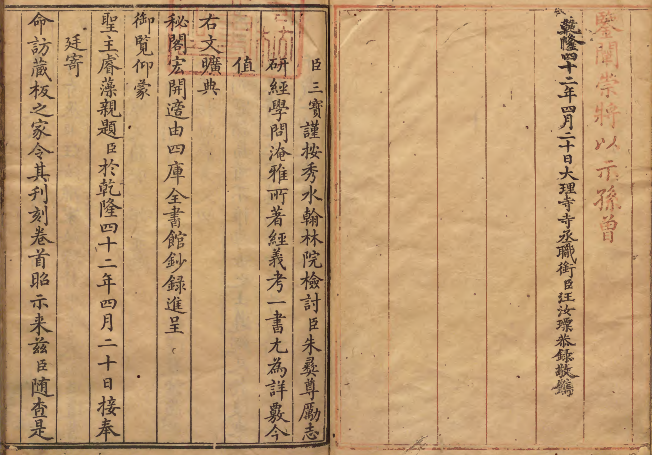 鑒闡崇將以示孫曾
乾隆四十二年四月二十日大理寺寺丞職銜臣汪汝瑮恭錄敬鐫
臣三寶謹按秀水翰林院檢討臣朱彝尊勵志
研經學問淹雅所著經義考一書尤為詳覈今
值
右文曠典
秘閣宏開遵由四庫全書館鈔録進呈
御覽仰蒙
聖主睿藻親題臣於乾隆四十二年四月二十日接奉
廷寄
命訪藏板之家令其刊刻卷首昭示来兹臣随查是